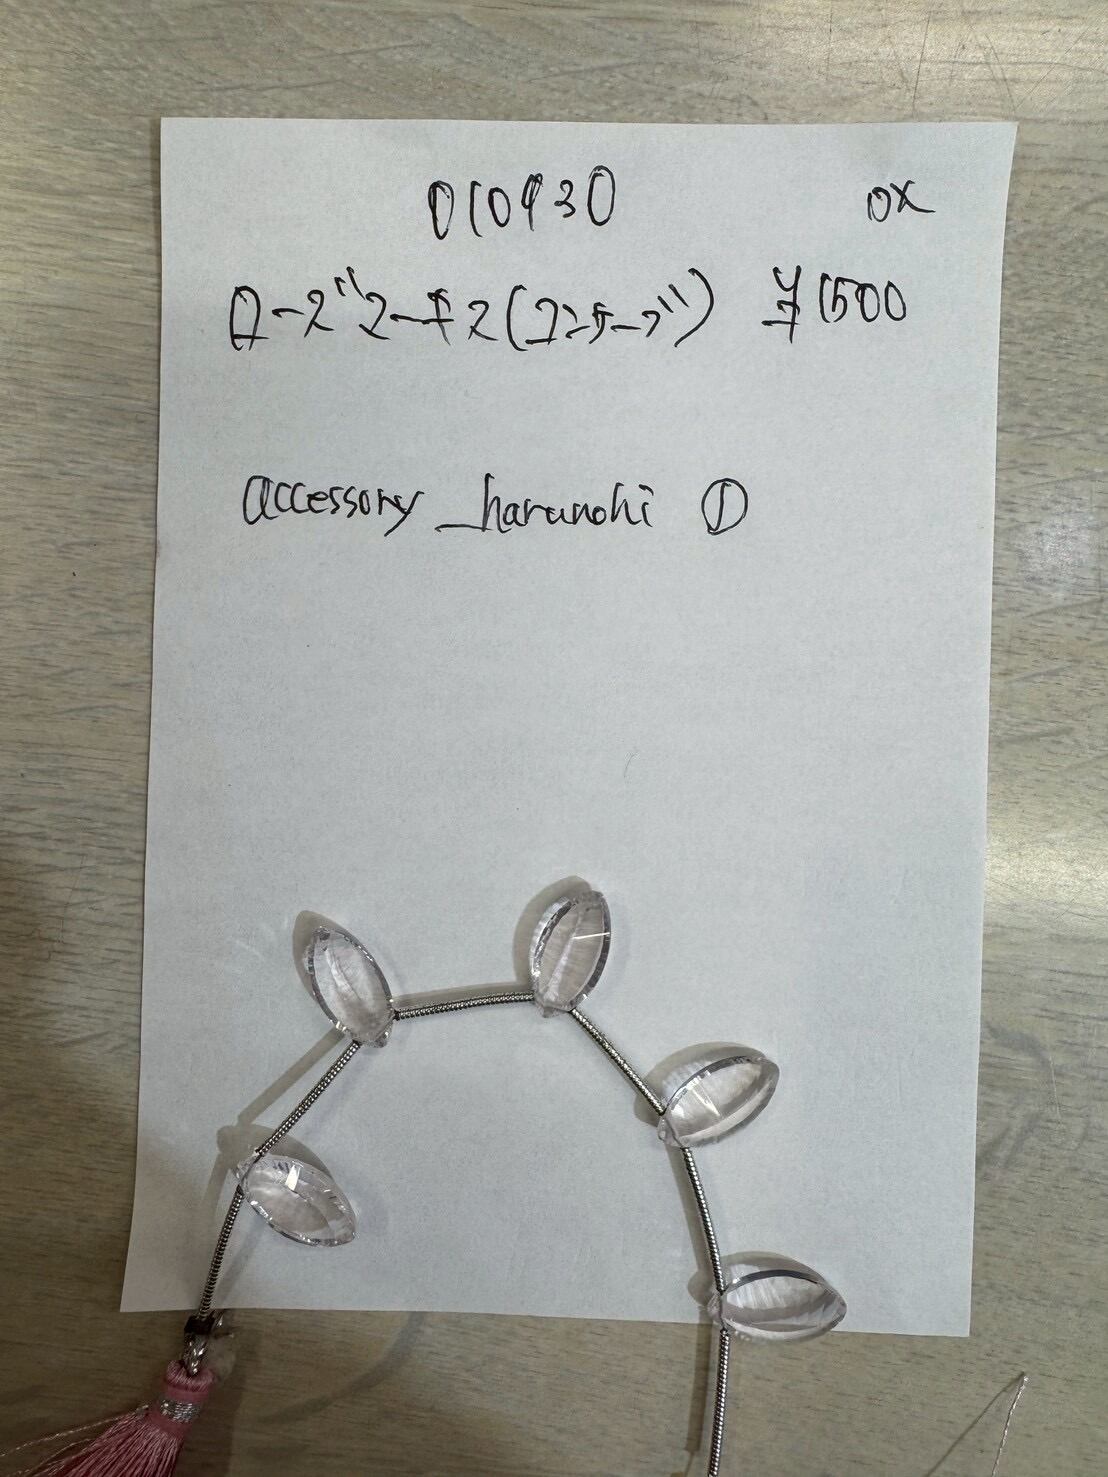 010930 OX
ローズクオーツ(コンケーブ) ¥1500
accessory_harunohi ①